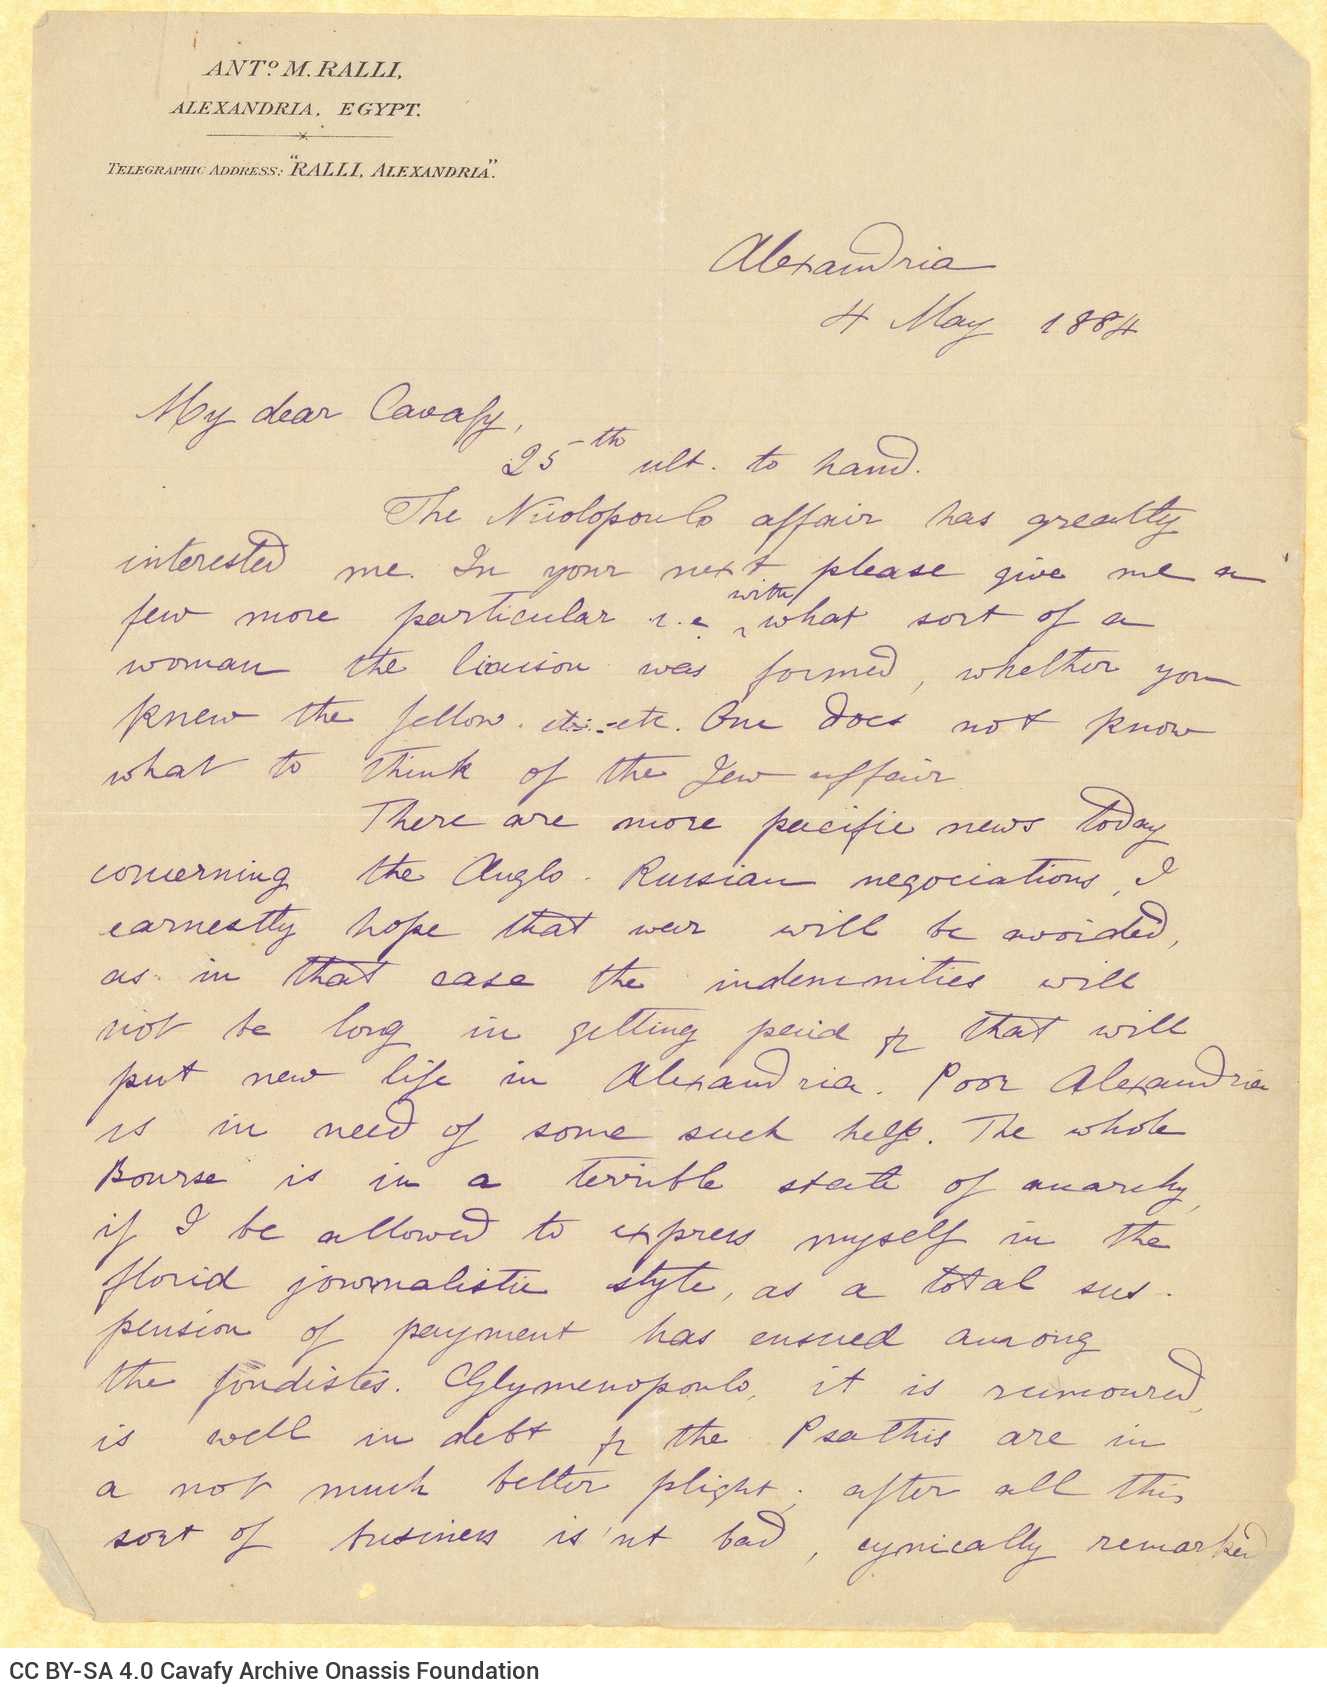 ANTº M. RALLI,
ALEXANDRIA, EGYPT.
TELEGRAPHIC ADDRESS: "RALLI, ALEXANDRIA".
Alexandria
4 May 1884
My dear Cavafy,
25th ult. to hand.
The Nicolopoulo affair has greatly
interested me. In your next please give me a
few more particular i.e with what sort of a
woman the liaison was formed, whether you
knew the fellow. etc. etc. One does not know
what to think of the Jew affair
There are more pacific news today
concerning the Anglo-Russian negociations, I
earnestly hope that war will be avoided,
as in that case the indemnities will
not be long in getting paid & that will
put new life in Alexandria. Poor Alexandria
is in need of some such help. The whole
Bourse is in a terrible state of anarchy,
if I be allowed to express myself in the
florid journalistic style, as a total sus-
pension of payment has ensued among
the fondistes. Glymenopoulo, it is rumoured,
is well in debt & the Psathis are in
a not much better plight; after all this
sort of business is'nt bad, cynically remarked
CC BY-SA 4.0 Cavafy Archive Onassis Foundation